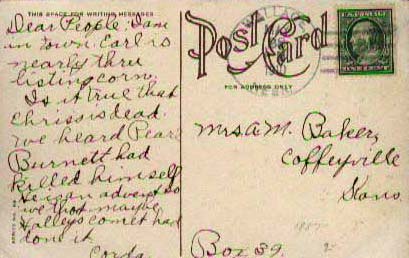 THIS SPACE FOR WRITING MESSAGES
Dear People: Dam
in Town. Earl is
nearly three
listing corn.
Is it true that
Chris is dead.
we heard Pearl
Burnett had
killed himself
He is an advent so
we that maybe
Halleys comet had
done it.
Corda
Post Card
WALLACE
FOR ADDRESS ONLY
U.S. POSTAGE
ONE CENT
Mrs. A. M. Baker,
Coffeyville
Kans.
Box 39.